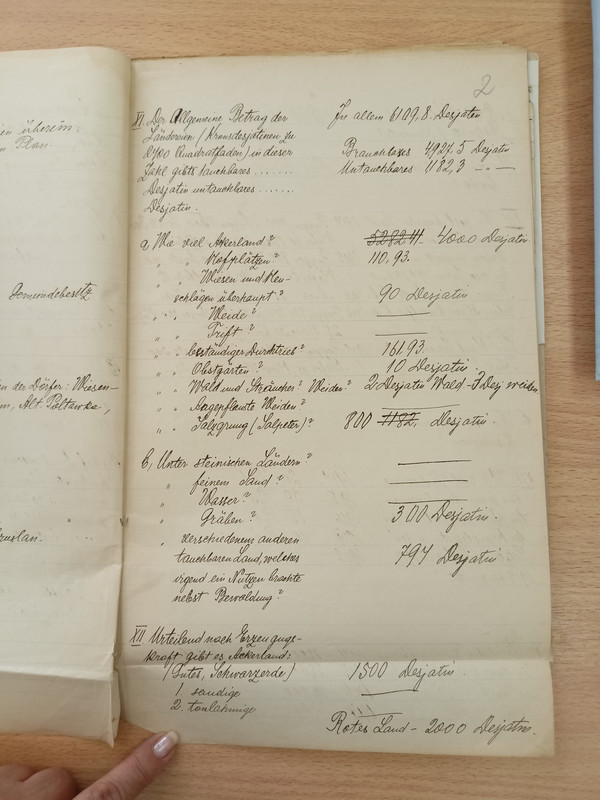 en überein-
n Plan.
Gemeindebesitz
n der Dörfer: Wiesen-
m, Alt. Poltawka,
ruslan.
2
XI. Der Allgemeine Betrag der
Ländereien (Kronsdesjatinen zu
2400 Quadratfaden) in dieser
Zahl gibts tauchbares .......
Desjatin untauchbares .......
Desjatin.
In allem 6109,8. Desjatin
Brauchbares 4927,5 Desjatin
Untauchbares 1182,3 —„—
a, Wie viel Ackerland? 5282 4000 Desjatin
„ „ Hofplätzen? 110,93.
„ „ Wiesen und Heu-
schlägen überhaupt? 90 Desjatin
„ „ Weide? —
„ „ Trift? —
„ „ beständiger Durchtrieb? 161,93
„ „ Obstgärten? 10 Desjatin
„ „ Wald und Sträucher? Weiden? 2 Desjatin Wald - 7 Desj weiden
„ „ Angepflanzte Weiden? —
„ „ Salzgrung (Salpeter)? 800 1182, Desjatin.
b, Unter steinischen Ländern? —
„ feinem Sand? —
„ Wasser? —
„ Gräben? 300 Desjatin.
„ verschiedenem anderen
tauchbaren Land, welches 794 Desjatin
irgend ein Nutzen brachte
nebst Bewaldung?
XII Urteilend nach Erzeugugs-
kraft gibt es Ackerland:
(Gutes, Schwarzerde) 1500 Desjatin.
1. sandige —
2. tonlahmige —
Rotes Land - 2000 Desjatin.